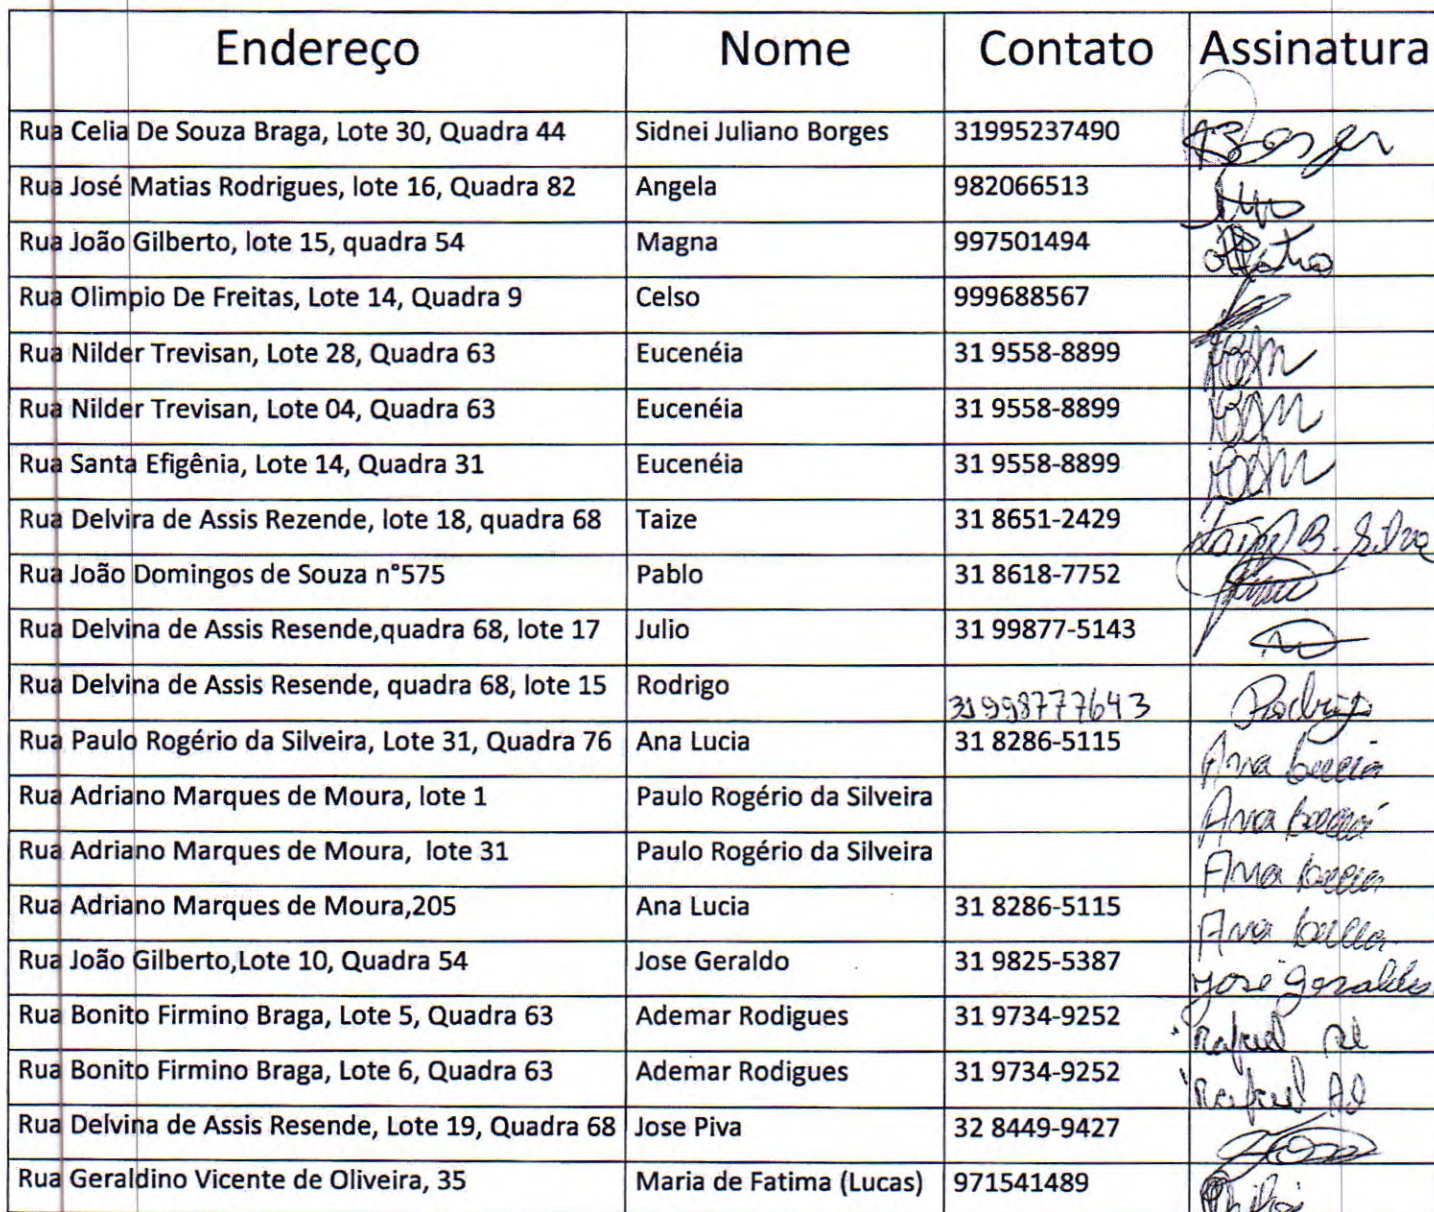 Endereço Nome Contato Assinatura
Rua Celia De Souza Braga, Lote 30, Quadra 44 Sidnei Juliano Borges 31995237490
Rua José Matias Rodrigues, lote 16, Quadra 82 Angela 982066513
Rua João Gilberto, lote 15, quadra 54 Magna 997501494
Rua Olimpio De Freitas, Lote 14, Quadra 9 Celso 999688567
Rua Nilder Trevisan, Lote 28, Quadra 63 Eucenéia 31 9558-8899
Rua Nilder Trevisan, Lote 04, Quadra 63 Eucenéia 31 9558-8899
Rua Santa Efigênia, Lote 14, Quadra 31 Eucenéia 31 9558-8899
Rua Delvira de Assis Rezende, lote 18, quadra 68 Taize 31 8651-2429 B. Silva
Rua João Domingos de Souza n°575 Pablo 31 8618-7752
Rua Delvina de Assis Resende,quadra 68, lote 17 Julio 31 99877-5143
Rua Delvina de Assis Resende, quadra 68, lote 15 Rodrigo 31998777643 Rodrigo
Rua Paulo Rogério da Silveira, Lote 31, Quadra 76 Ana Lucia 31 8286-5115 Ana Lucia
Rua Adriano Marques de Moura, lote 1 Paulo Rogério da Silveira Ana Lucia
Rua Adriano Marques de Moura, lote 31 Paulo Rogério da Silveira Ana Lucia
Rua Adriano Marques de Moura,205 Ana Lucia 31 8286-5115 Ana Lucia
Rua João Gilberto,Lote 10, Quadra 54 Jose Geraldo 31 9825-5387 José Geraldo
Rua Bonito Firmino Braga, Lote 5, Quadra 63 Ademar Rodigues 31 9734-9252 Rafael
Rua Bonito Firmino Braga, Lote 6, Quadra 63 Ademar Rodigues 31 9734-9252 Rafael
Rua Delvina de Assis Resende, Lote 19, Quadra 68 Jose Piva 32 8449-9427
Rua Geraldino Vicente de Oliveira, 35 Maria de Fatima (Lucas) 971541489